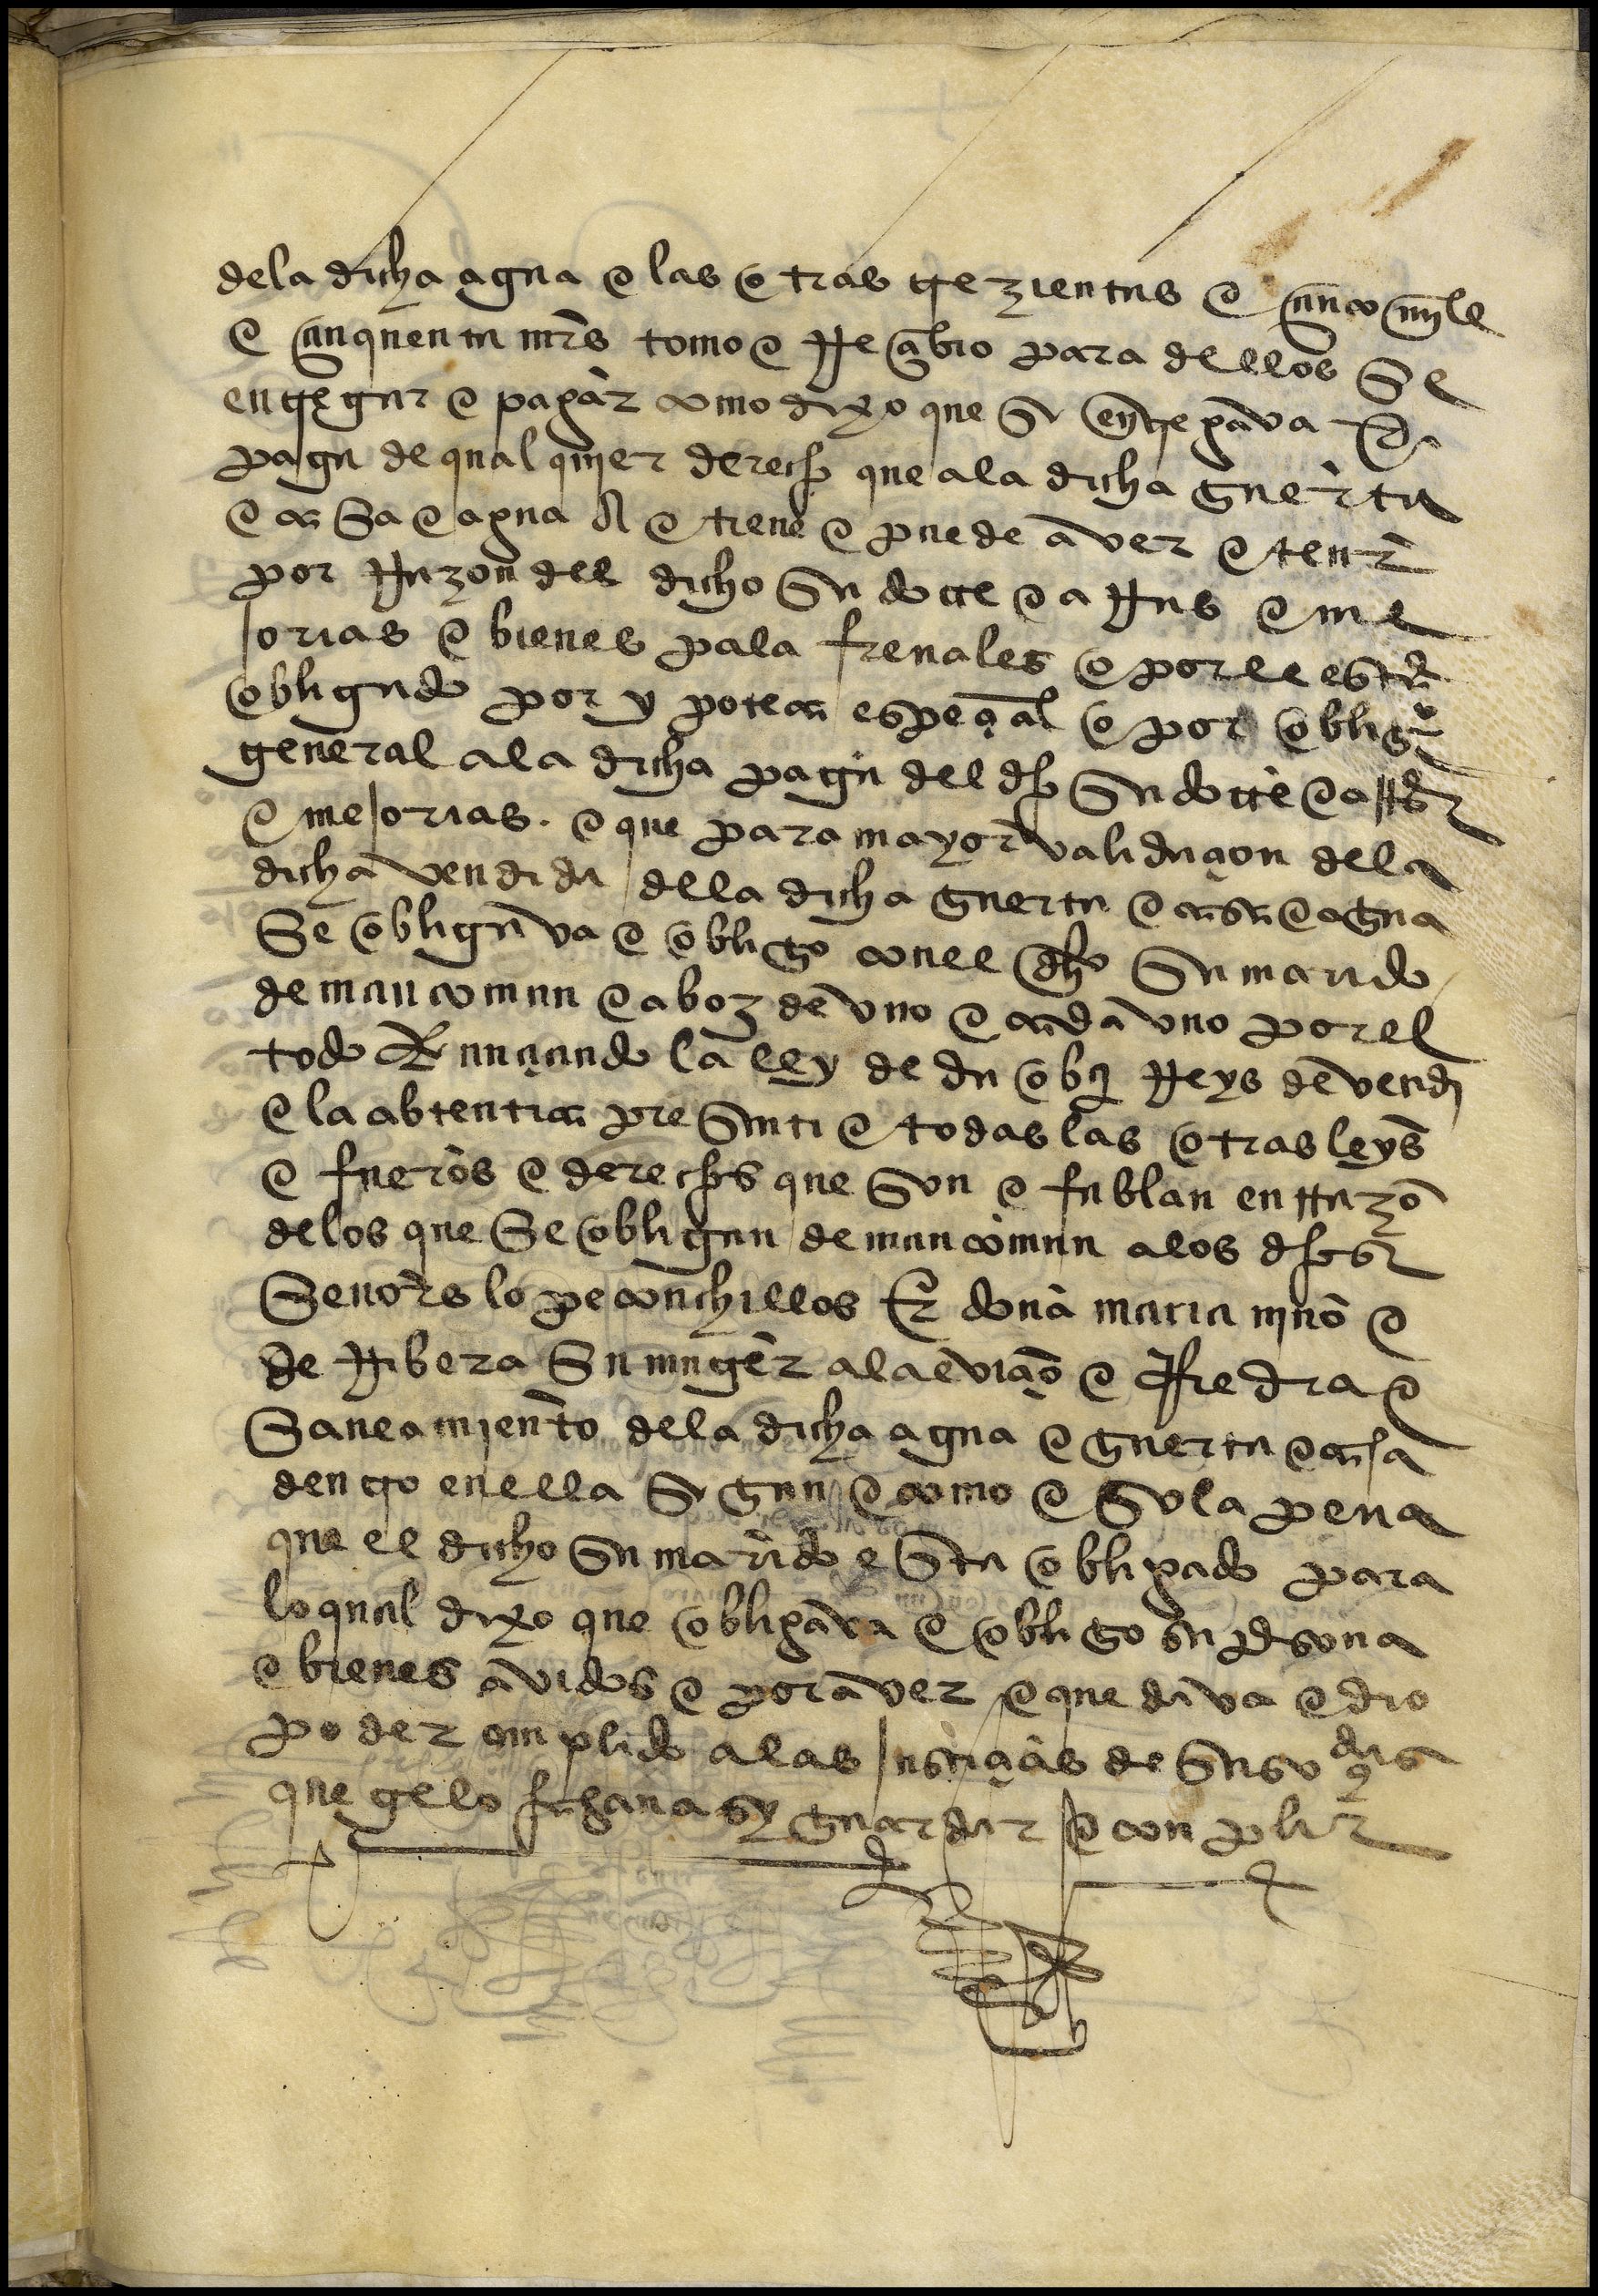 dela dicha agua e las otras trezientas e çinco mjll
e çinquenta mrs tomo e Reçibio para dellos se
entregar e pagar como dixo que se entregava e
paga de qual quier derecho que ala dicha guerta
e casa e agua a e tiene e puede aver e tener
por Razon del dicho su docte e aRas e me
jorias e bienes para frenales e por le estar
obligado por ypoteca espeçial e por oblig
general ala dicha paga del dho su docte e aRas
e mejorias. e que para mayor validaçion dela
dicha vendida della dicha guerta e casa e agua
se obligava e obligo con el dho su marido
de mancomun e a boz de vno e cada vno por el
todo Renunçiando la ley de duobus Reys devendi
e la abtentica presenti e todas las otras leys
e fueros e derechos que son e fablan en Razon
delos que se obligan de mancomun alos dhos
Señores lope conchillos e doña maria niño
de Ribera su muger ala eviçion e Redra e
saneamjento dela dicha agua e guerta e casa
dentro en ella segun e como e so la pena
que el dicho su marido esta obligado para
lo qual dixo que obligava e obligo su persona
e bienes avidos e por aver e que dava e dio
poder conplido alas justiçias de suso dichas
que gelo fagan asy guardar e conplir